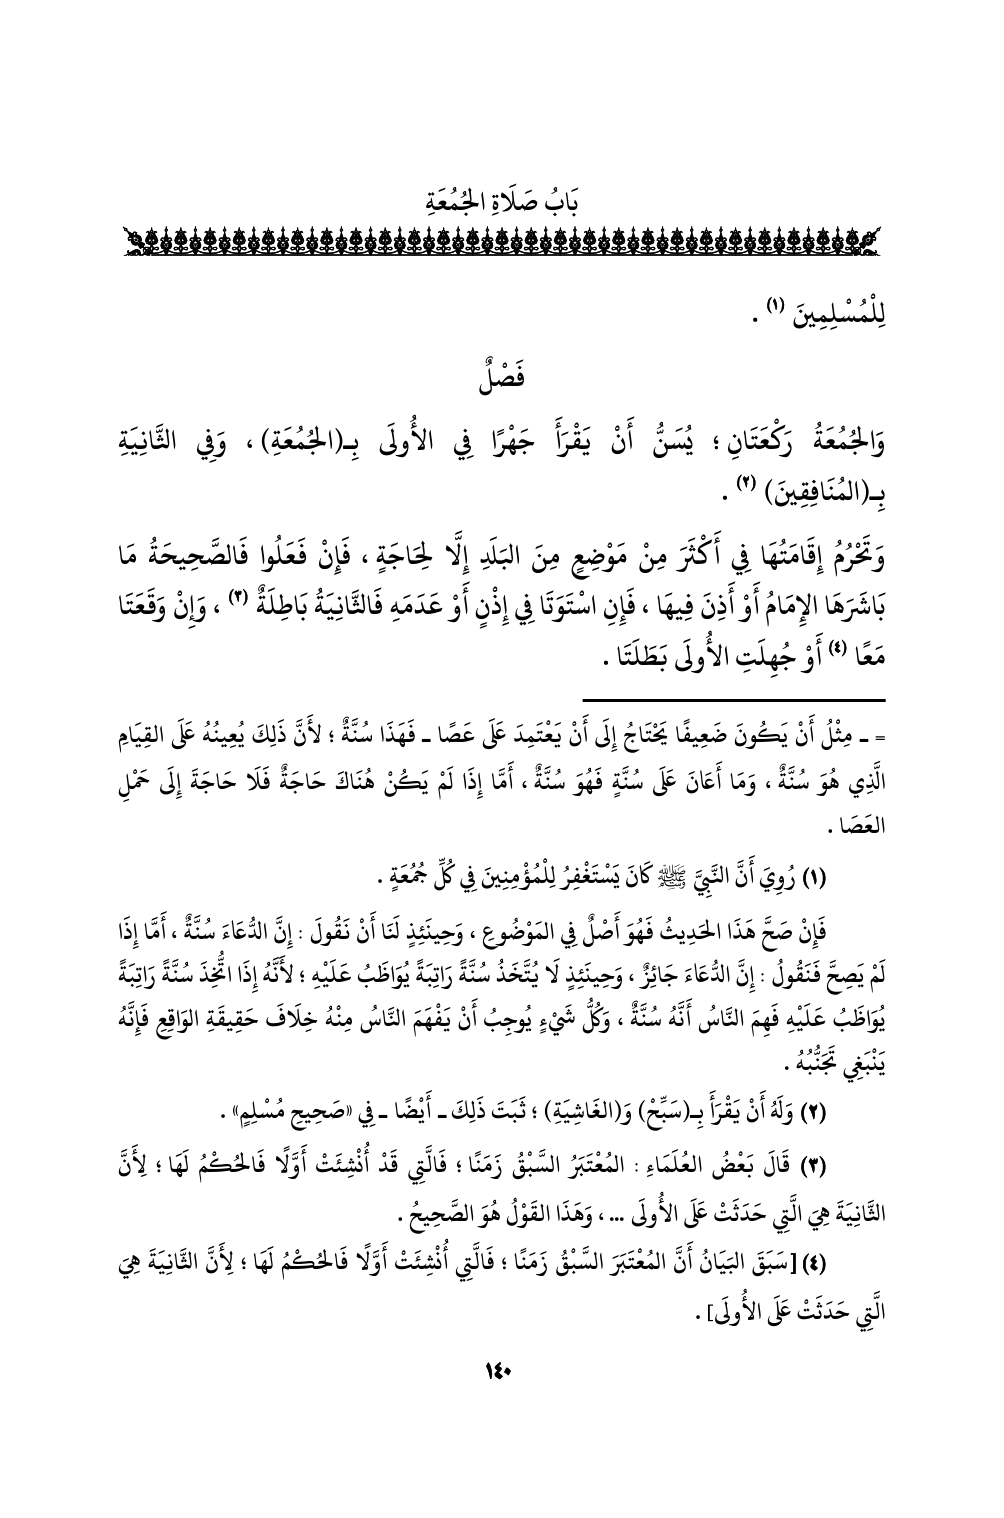 بَابُ صَلَاةِ الجُمُعَةِ
لِلْمُسْلِمِينَ (١) .
فَصْلٌ
وَالجُمُعَةُ رَكْعَتَانِ ؛ يُسَنُّ أَنْ يَقْرَأَ جَهْرًا فِي الأُولَى بِـ(الجُمُعَةِ) ، وَفِي الثَّانِيَةِ
بِـ(المُنَافِقِينَ) (٢) .
وَتَحْرُمُ إِقَامَتُهَا فِي أَكْثَرَ مِنْ مَوْضِعٍ مِنَ البَلَدِ إِلَّا لِحَاجَةٍ ، فَإِنْ فَعَلُوا فَالصَّحِيحَةُ مَا
بَاشَرَهَا الإِمَامُ أَوْ أَذِنَ فِيهَا ، فَإِنِ اسْتَوَتَا فِي إِذْنٍ أَوْ عَدَمِهِ فَالثَّانِيَةُ بَاطِلَةٌ (٣) ، وَإِنْ وَقَعَتَا
مَعًا (٤) أَوْ جُهِلَتِ الأُولَى بَطَلَتَا .
= ـ مِثْلُ أَنْ يَكُونَ ضَعِيفًا يَحْتَاجُ إِلَى أَنْ يَعْتَمِدَ عَلَى عَصًا ـ فَهَذَا سُنَّةٌ ؛ لأَنَّ ذَلِكَ يُعِينُهُ عَلَى القِيَامِ
الَّذِي هُوَ سُنَّةٌ ، وَمَا أَعَانَ عَلَى سُنَّةٍ فَهُوَ سُنَّةٌ ، أَمَّا إِذَا لَمْ يَكُنْ هُنَاكَ حَاجَةٌ فَلَا حَاجَةَ إِلَى حَمْلِ
العَصَا .
(١) رُوِيَ أَنَّ النَّبِيَّ ﷺ كَانَ يَسْتَغْفِرُ لِلْمُؤْمِنِينَ فِي كُلِّ جُمُعَةٍ .
فَإِنْ صَحَّ هَذَا الحَدِيثُ فَهُوَ أَصْلٌ فِي المَوْضُوعِ ، وَحِينَئِذٍ لَنَا أَنْ نَقُولَ : إِنَّ الدُّعَاءَ سُنَّةٌ ، أَمَّا إِذَا
لَمْ يَصِحَّ فَنَقُولُ : إِنَّ الدُّعَاءَ جَائِزٌ ، وَحِينَئِذٍ لَا يُتَّخَذُ سُنَّةً رَاتِبَةً يُوَاظَبُ عَلَيْهِ ؛ لأَنَّهُ إِذَا اتُّخِذَ سُنَّةً رَاتِبَةً
يُوَاظَبُ عَلَيْهِ فَهِمَ النَّاسُ أَنَّهُ سُنَّةٌ ، وَكُلُّ شَيْءٍ يُوجِبُ أَنْ يَفْهَمَ النَّاسُ مِنْهُ خِلَافَ حَقِيقَةِ الوَاقِعِ فَإِنَّهُ
يَنْبَغِي تَجَنُّبُهُ .
(٢) وَلَهُ أَنْ يَقْرَأَ بِـ(سَبِّحْ) وَ(الغَاشِيَةِ) ؛ ثَبَتَ ذَلِكَ ـ أَيْضًا ـ فِي «صَحِيحِ مُسْلِمٍ» .
(٣) قَالَ بَعْضُ العُلَمَاءِ : المُعْتَبَرُ السَّبْقُ زَمَنًا ؛ فَالَّتِي قَدْ أُنْشِئَتْ أَوَّلًا فَالحُكْمُ لَهَا ؛ لِأَنَّ
الثَّانِيَةَ هِيَ الَّتِي حَدَثَتْ عَلَى الأُولَى ... ، وَهَذَا القَوْلُ هُوَ الصَّحِيحُ .
(٤) [سَبَقَ البَيَانُ أَنَّ المُعْتَبَرَ السَّبْقُ زَمَنًا ؛ فَالَّتِي أُنْشِئَتْ أَوَّلًا فَالحُكْمُ لَهَا ؛ لِأَنَّ الثَّانِيَةَ هِيَ
الَّتِي حَدَثَتْ عَلَى الأُولَى] .
١٤٠